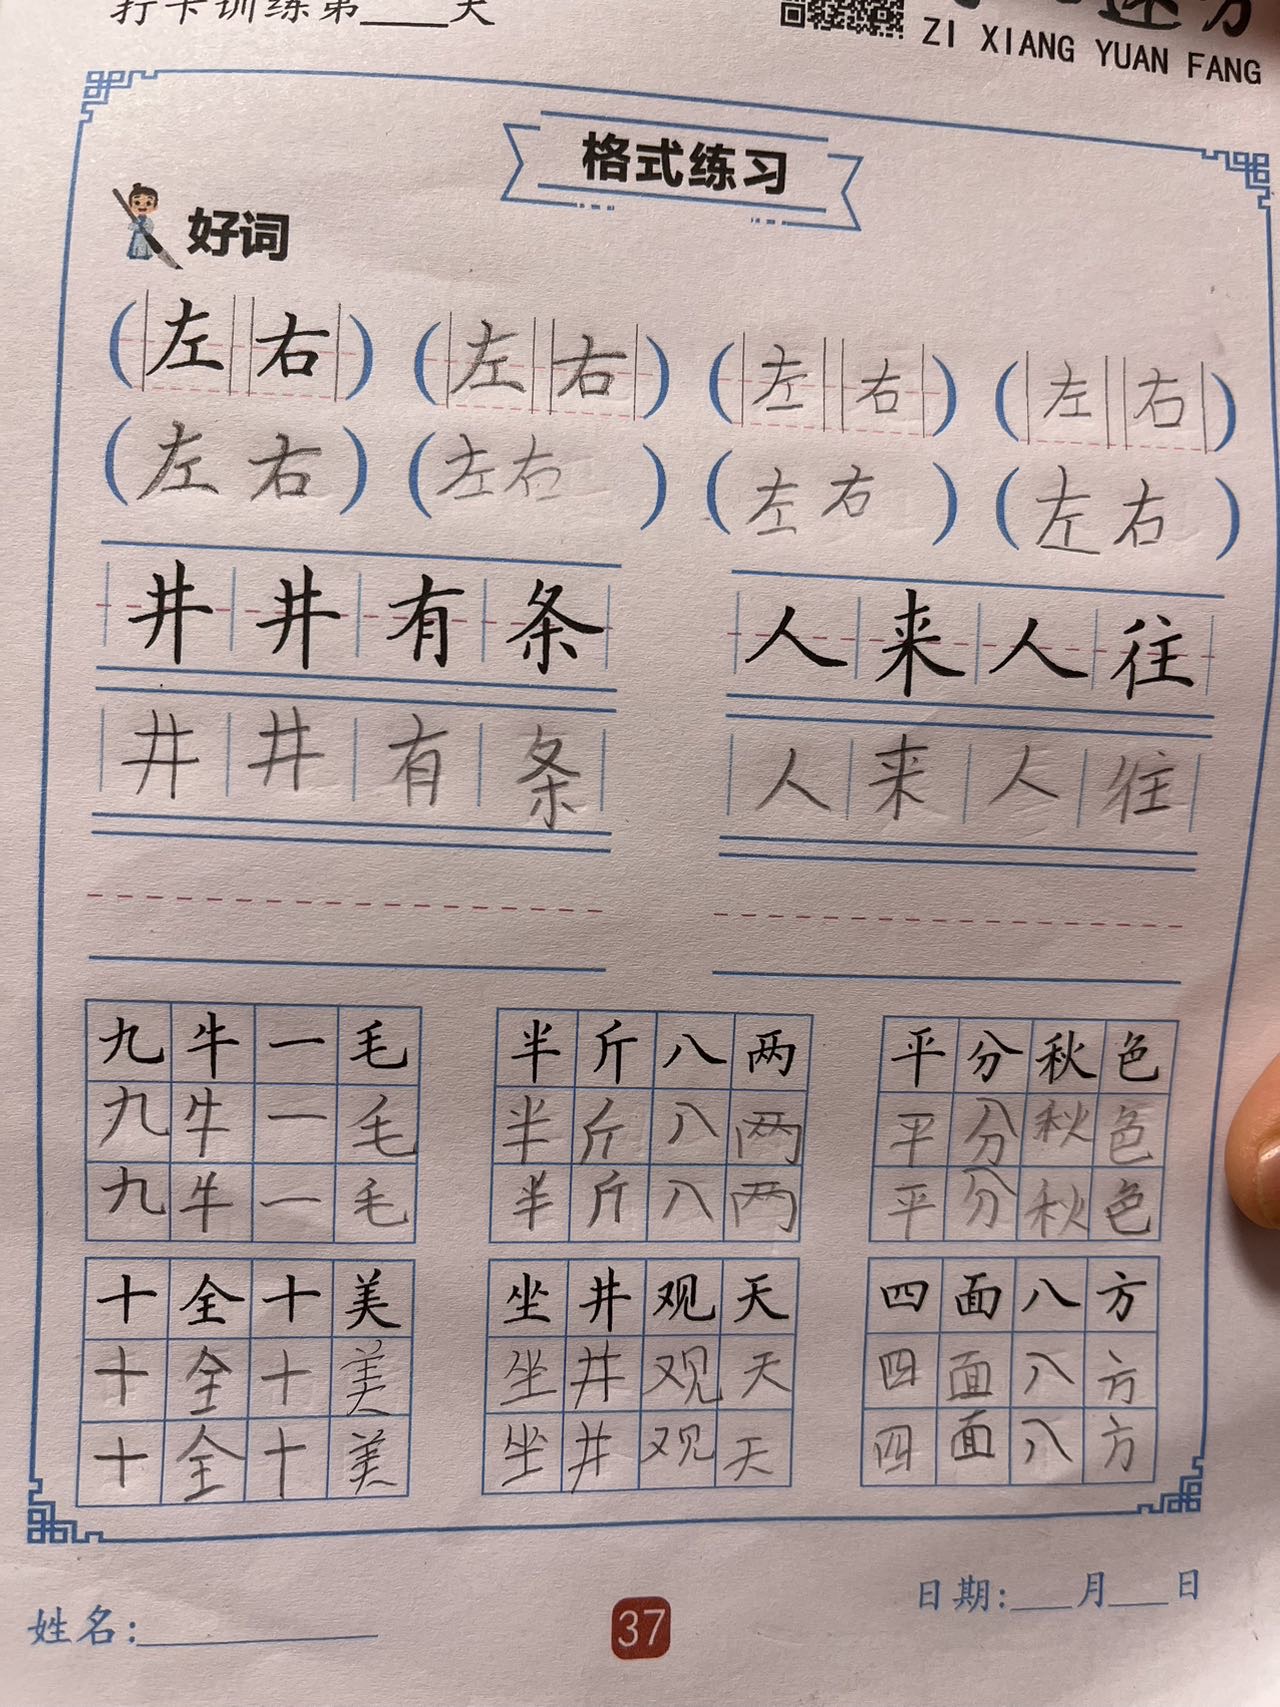 打卡训练第____天
ZI XIANG YUAN FANG
格式练习
好词
(左右) (左右) (左右) (左右)
(左右) (左右) (左右) (左右)
井井有条 人来人往
井井有条 人来人往
九牛一毛 半斤八两 平分秋色
九牛一毛 半斤八两 平分秋色
九牛一毛 半斤八两 平分秋色
十全十美 坐井观天 四面八方
十全十美 坐井观天 四面八方
十全十美 坐井观天 四面八方
姓名:________ 37 日期:___月___日